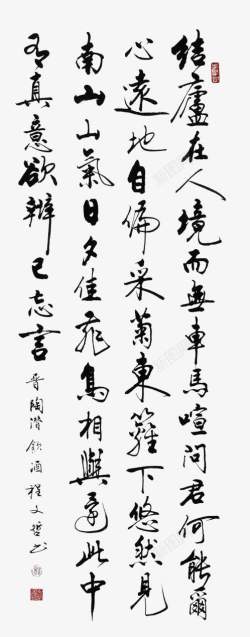 結廬在人境而無車馬喧問君何能爾
心遠地自偏采菊東籬下悠然見
南山山氣日夕佳飛鳥相與還此中
有真意欲辨已忘言
晉陶潛飲酒程文哲书